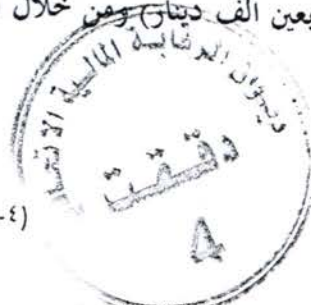 بعين الف دينار) ومن خلال
ديوان الرقابة المالية الاتحا
دققت
٨
٤-)